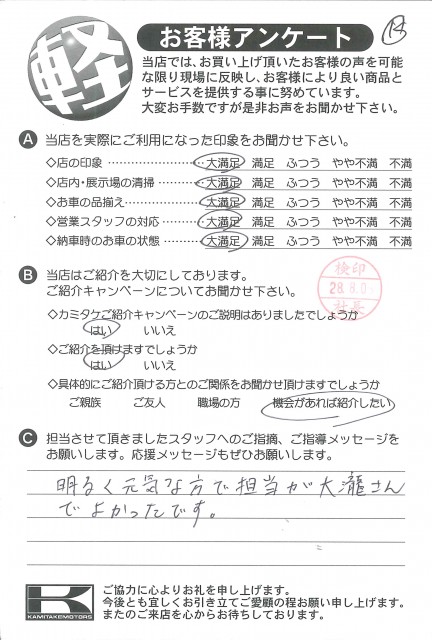 軽
お客様アンケート
当店では、お買い上げ頂いたお客様の声を可能
な限り現場に反映し、お客様により良い商品と
サービスを提供する事に努めています。
大変お手数ですが是非お声をお聞かせ下さい。
A 当店を実際にご利用になった印象をお聞かせ下さい。
◇店の印象 ………………… 大満足 満足 ふつう やや不満 不満
◇店内・展示場の清掃 ……… 大満足 満足 ふつう やや不満 不満
◇お車の品揃え …………… 大満足 満足 ふつう やや不満 不満
◇営業スタッフの対応 ……… 大満足 満足 ふつう やや不満 不満
◇納車時のお車の状態 ……… 大満足 満足 ふつう やや不満 不満
B 当店はご紹介を大切にしております。
ご紹介キャンペーンについてお聞かせ下さい。
検印
28.8.0
社長
◇カミタケご紹介キャンペーンのご説明はありましたでしょうか
はい いいえ
◇ご紹介を頂けますでしょうか
はい いいえ
◇具体的にご紹介頂ける方とのご関係をお聞かせ頂けますでしょうか
ご親族 ご友人 職場の方 機会があれば紹介したい
C 担当させて頂きましたスタッフへのご指摘、ご指導メッセージを
お願いします。応援メッセージもぜひお願いします。
明るく元気な方で担当が大瀧さん
でよかったです。
K
KAMITAKEMOTORS
ご協力に心よりお礼を申し上げます。
今後とも宜しくお引き立てご愛顧の程お願い申し上げます。
またのご来店を心からお待ちしております。